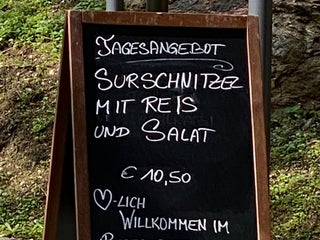 TAGESANGEBOT
SURSCHNITZEL
MIT REIS
UND SALAT
€ 10,50
♡-LICH
WILLKOMMEN IM